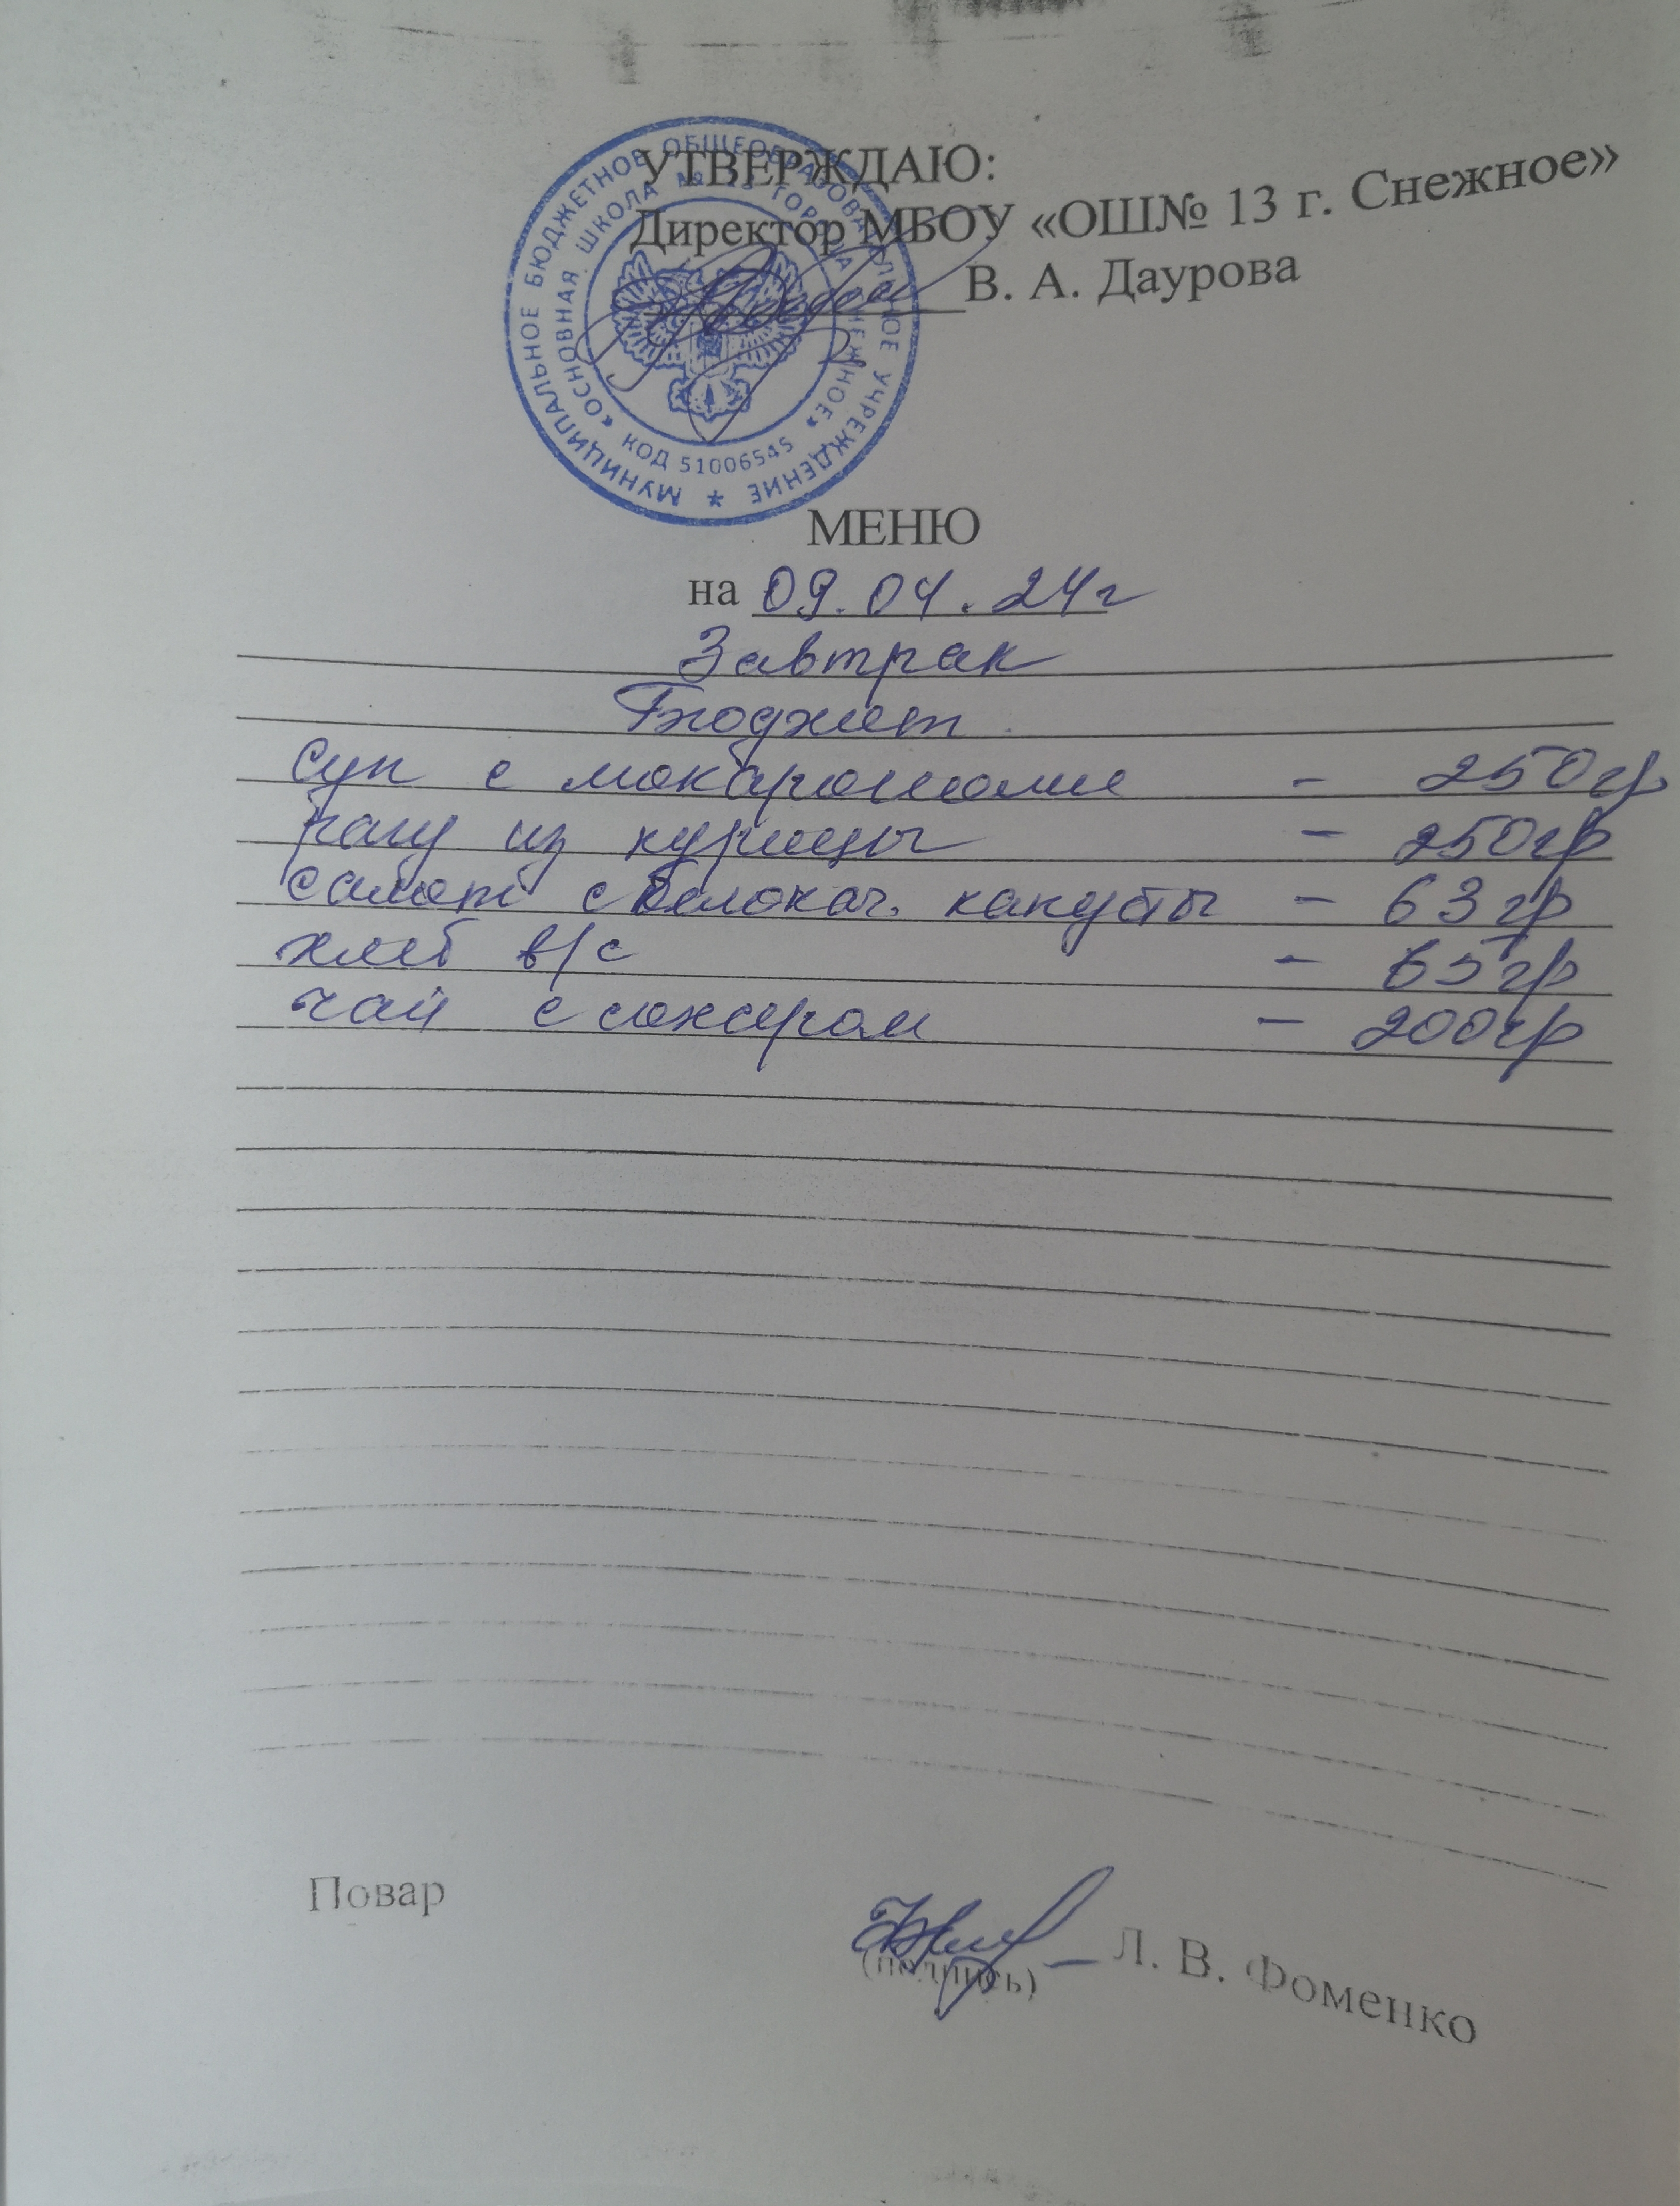 УТВЕРЖДАЮ:
Директор МБОУ «ОШ№ 13 г. Снежное»
В. А. Даурова
МУНИЦИПАЛЬНОЕ БЮДЖЕТНОЕ ОБЩЕОБРАЗОВАТЕЛЬНОЕ УЧРЕЖДЕНИЕ
«ОСНОВНАЯ ШКОЛА № 13 ГОРОДА СНЕЖНОЕ»
КОД 51006545
МЕНЮ
на 09.04.24г
Завтрак
Бюджет.
суп с макаронами - 250гр
рагу из курицы - 250гр
салат с белокач. капусты - 63гр
хлеб в/с - 65гр
чай с сахаром - 200гр
Повар
(подпись) Л. В. Фоменко